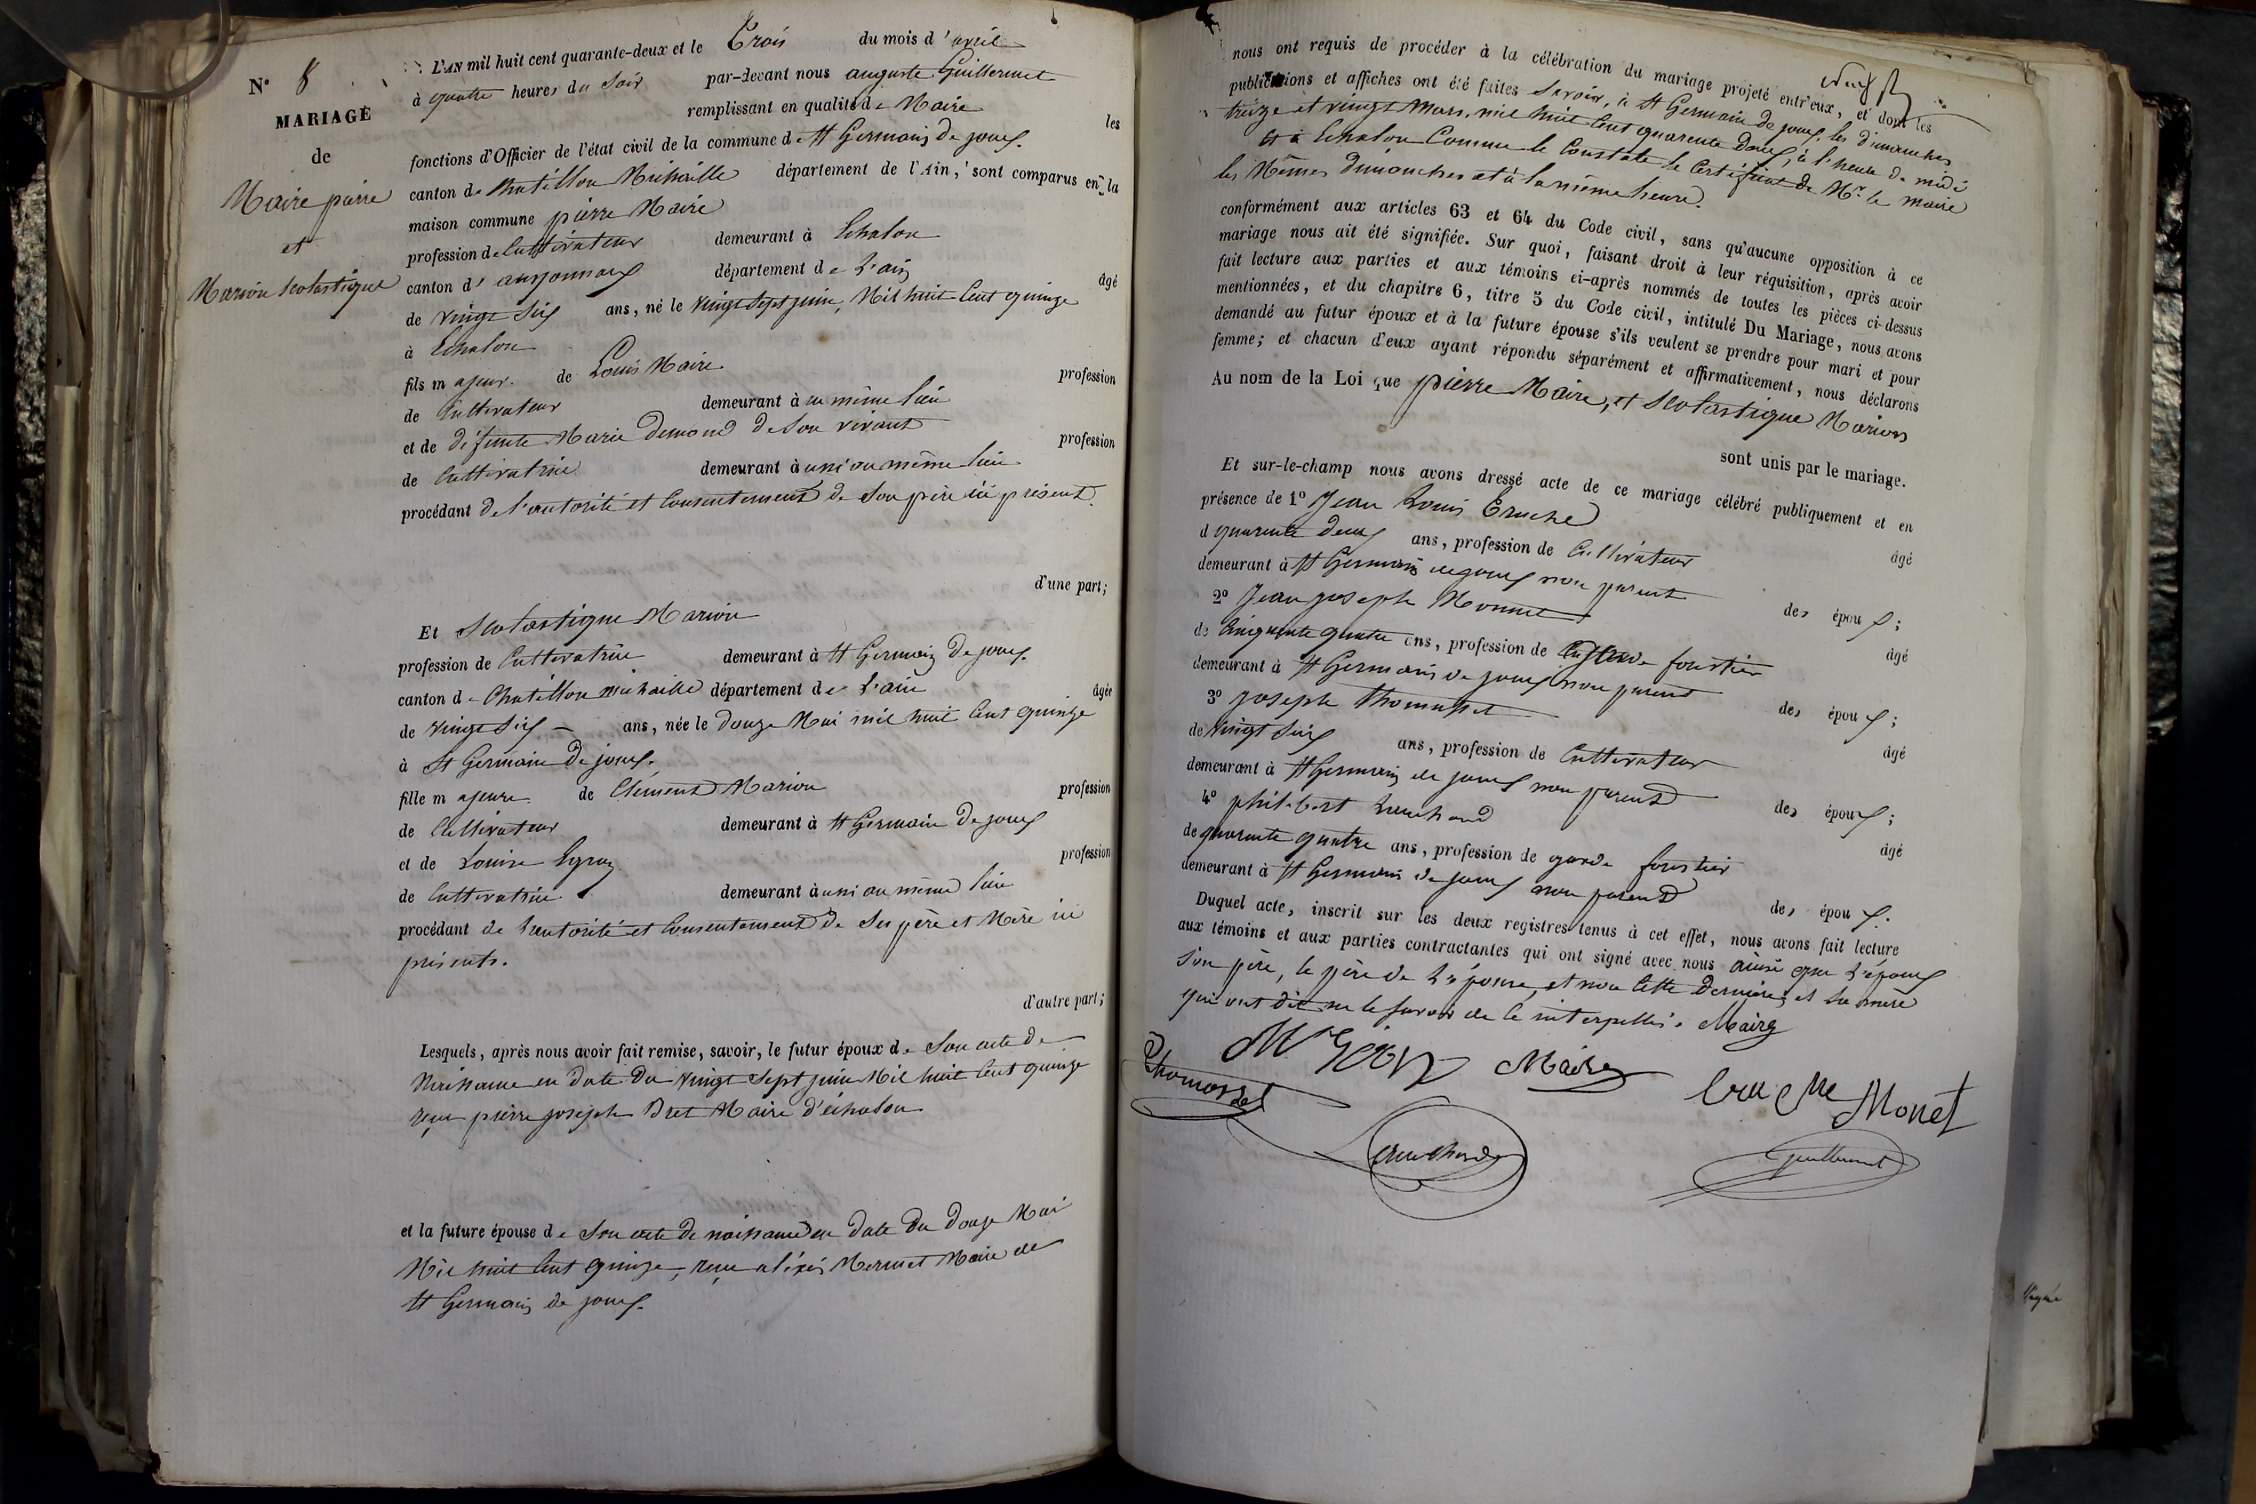 N° 8
MARIAGE
de
Maire pierre
et
Marion Scolastique
L'AN mil huit cent quarante-deux et le Trois du mois d'avril
à quatre heures du Soir par-devant nous auguste Guillermet
remplissant en qualité de Maire les
fonctions d'Officier de l'état civil de la commune de St Germain de joux.
canton de Chatillon Michaille département de l'Ain, sont comparus en la
maison commune pierre Maire
profession de Cultivateur demeurant à Echalon
canton d' département de L'ain âgé
de vingt Six ans, né le vingt Sept juin, Mil huit Cent quinze
à Echalon
fils majeur. de Louis Maire profession
de Cultivateur demeurant à au même lieu
et de défunte Marie Demond de Son vivant profession
de Cultivatrice demeurant à aussi au même lieu
procédant de l'autorité et Consentement de Son père ici présent.
d'une part;
Et Scolastique Marion
profession de Cultivatrice demeurant à St Germain de joux.
canton de Chatillon michaille département de L'ain âgée
de vingt Six ans, née le douze Mai mil huit Cent quinze
à St Germain de joux.
fille majeure. de Clément Marion profession
de Cultivateur demeurant à St Germain de joux
et de Louise Egraz profession
de Cultivatrice demeurant à aussi au même lieu
procédant de L'autorité et Consentement de Ses père et Mère ici
présents.
d'autre part;
Lesquels, après nous avoir fait remise, savoir, le futur époux de Son acte de
Naissance en date du vingt Sept juin Mil huit Cent quinze
reçu pierre joseph Dret Maire d'échalon
et la future épouse de Son acte de naissance en date du douze Mai
Mil huit Cent quinze, reçu aléxis Mermet Maire de
St Germain de joux.
nous ont requis de procéder à la célébration du mariage projeté entr'eux, et dont les
publications et affiches ont été faites Savoir, à St Germain de joux, les dimanches
treize et vingt Mars, mil huit Cent quarante Deux, à l'heure de midi
et à Echalon Comme le Constate le Certificat de Mr. le maire
les Mêmes dimanches et à la même heure.
conformément aux articles 63 et 64 du Code civil, sans qu'aucune opposition à ce
mariage nous ait été signifiée. Sur quoi, faisant droit à leur réquisition, après avoir
fait lecture aux parties et aux témoins ci-après nommés de toutes les pièces ci-dessus
mentionnées, et du chapitre 6, titre 5 du Code civil, intitulé Du Mariage, nous avons
demandé au futur époux et à la future épouse s'ils veulent se prendre pour mari et pour
femme; et chacun d'eux ayant répondu séparément et affirmativement, nous déclarons
Au nom de la Loi que pierre Maire, et Scolastique Marion
sont unis par le mariage.
Et sur-le-champ nous avons dressé acte de ce mariage célébré publiquement et en
présence de 1° Jean Louis Cruche âgé
d quarante deux ans, profession de Cultivateur
demeurant à St Germain de joux non parent des époux;
2° Jean joseph Monnet âgé
de Cinquante quatre ans, profession de forestier
demeurant à St Germain de joux non parent des époux;
3° joseph Thomasset âgé
de vingt Six ans, profession de Cultivateur
demeurant à St Germain de joux non parent des époux;
4° philibert âgé
de quarante quatre ans, profession de garde forestier
demeurant à St Germain de joux non parent des époux.
Duquel acte, inscrit sur les deux registres tenus à cet effet, nous avons fait lecture
aux témoins et aux parties contractantes qui ont signé avec nous ainsi que L'époux
Son père, le père de L'épouse, et non Cette Dernière, et Sa mère
qui ont dit ne le Savoir de Ce interpellés. Maire
Thomasset Maire Cruche Monet
Guillermet